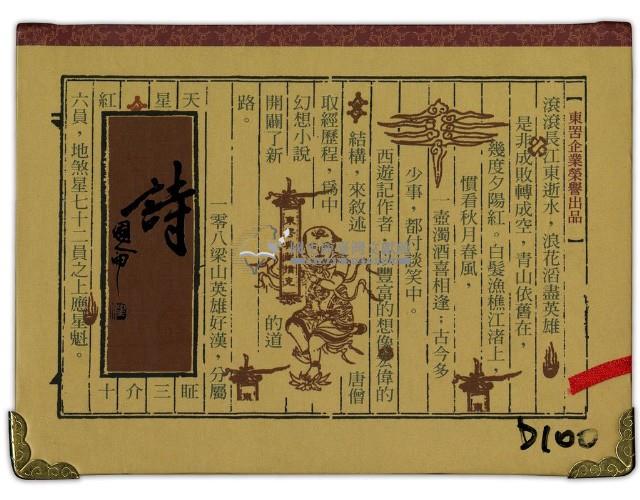 【東罟企業榮譽出品】
滾滾長江東逝水，浪花滔盡英雄
是非成敗轉成空，青山依舊在，
幾度夕陽紅。白髮漁樵江渚上，
慣看秋月春風，
一壺濁酒喜相逢：古今多
少事，都付談笑中。
西遊記作者 豐富的想像宏偉的
結構，來敘述 唐僧
取經歷程，為中
幻想小說
開闢了新 的道
路。
一零八梁山英雄好漢，分屬
天星 紅
詩
十介三
六員，地煞星七十二員之上應星魁。
東
東
D100